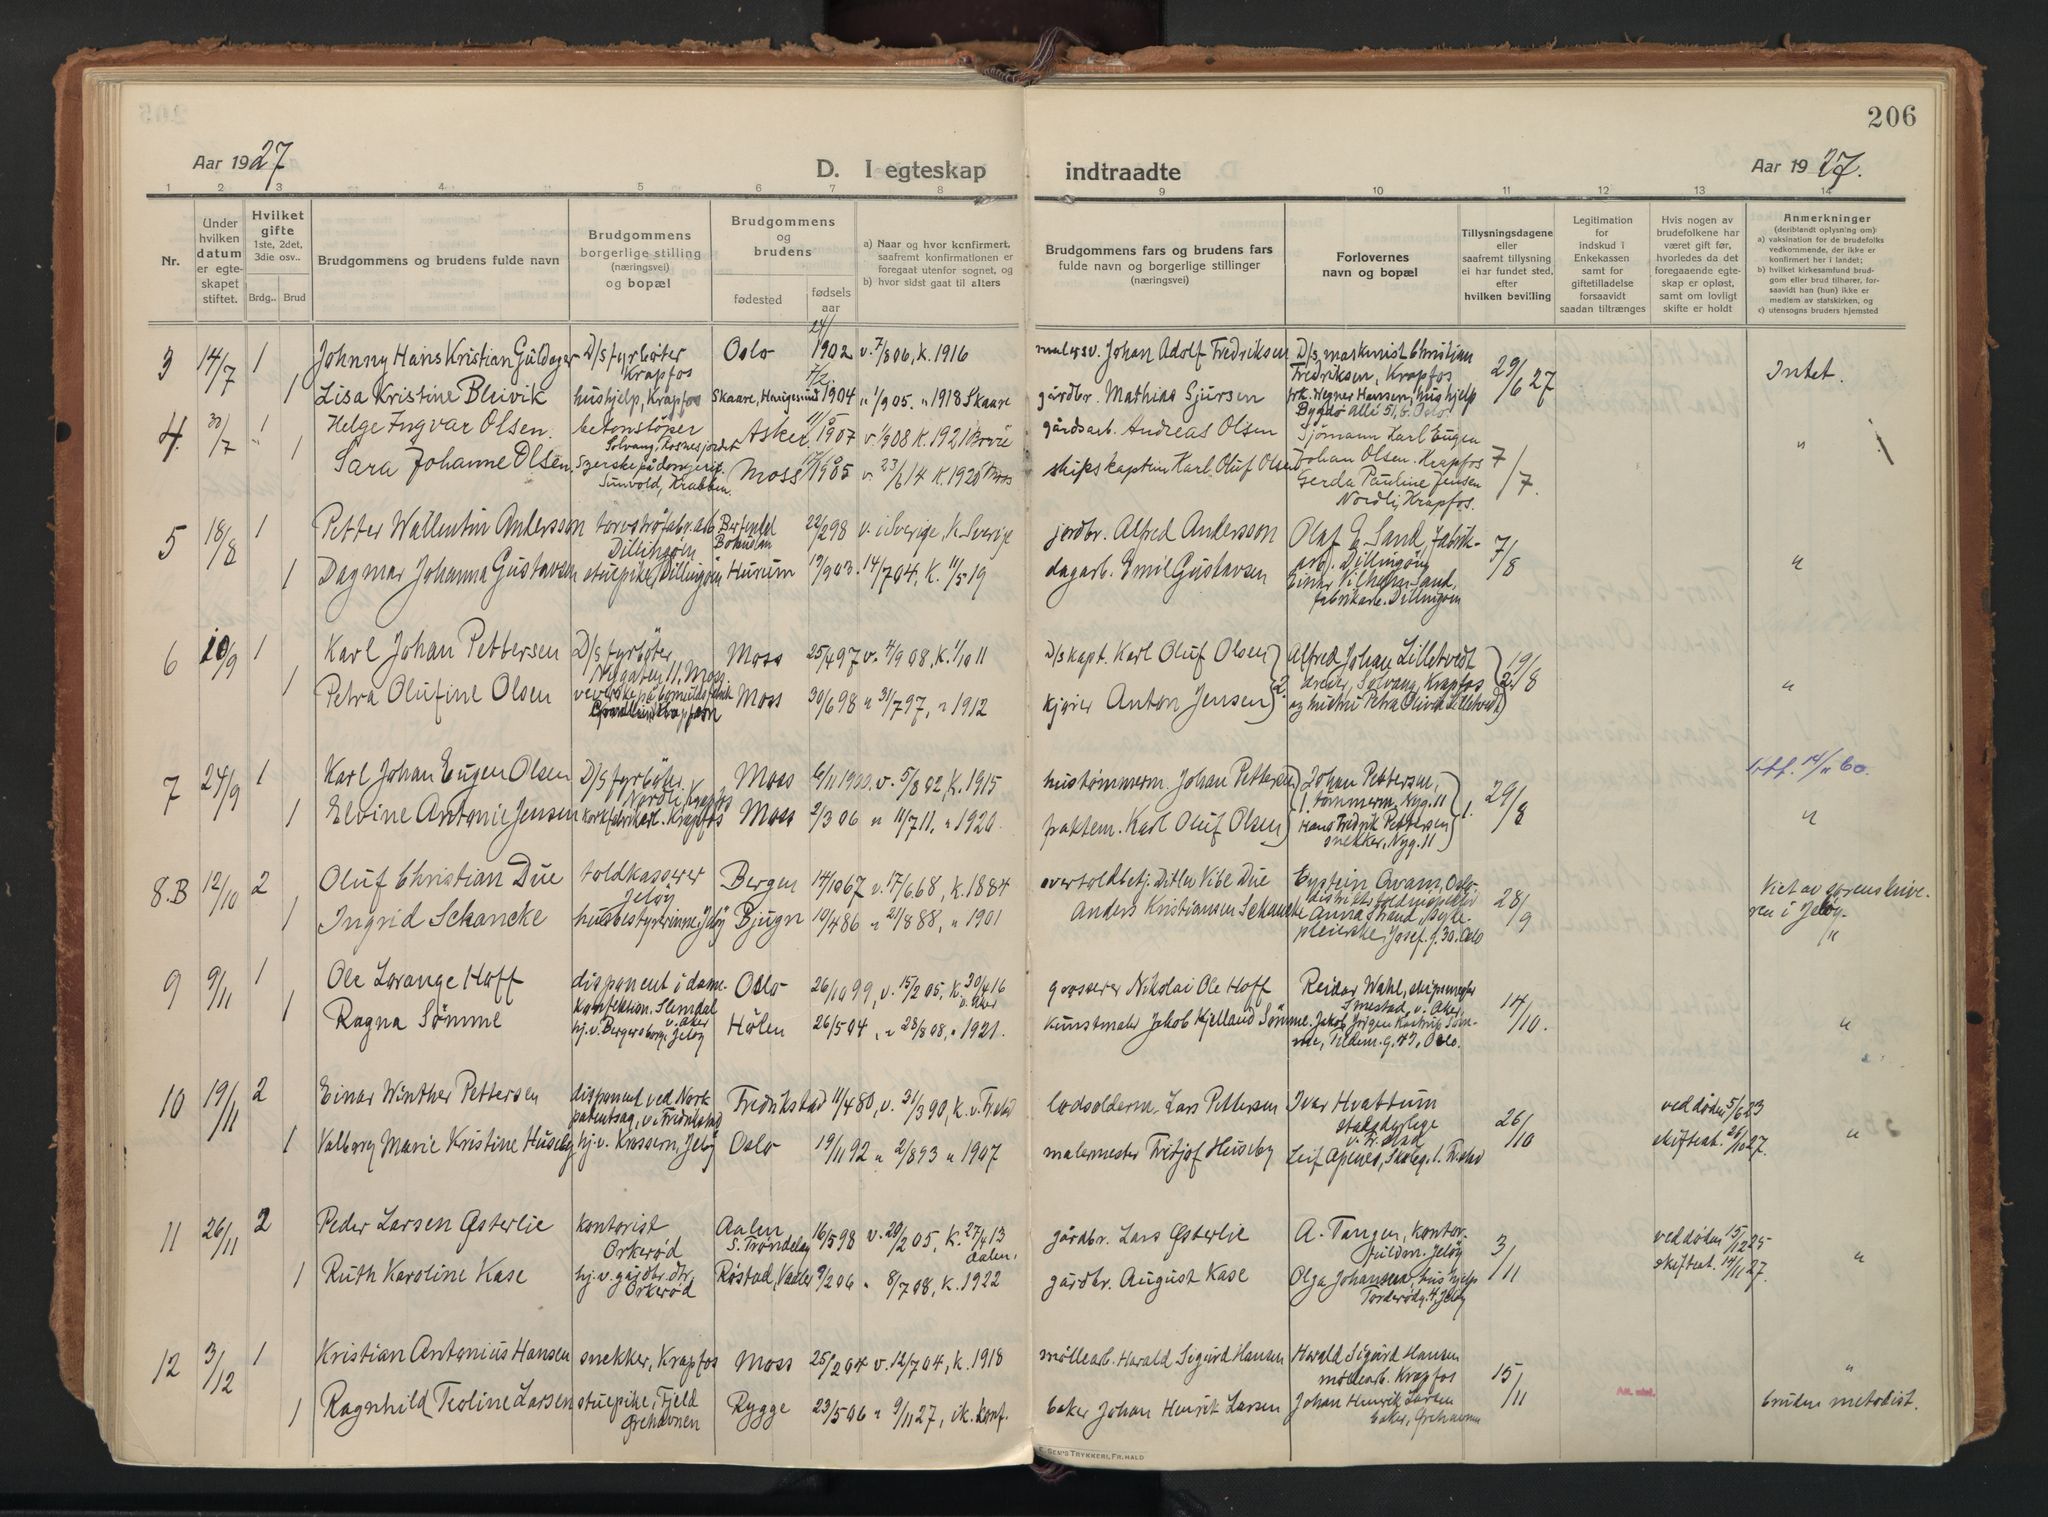 206
Aar 1927
D. I egteskap indtraadte
Aar 1927.
1 2 3 4 5 6 7 8 9 10 11 12 13 14
Nr.
Under hvilken datum er egteskapet stiftet.
Hvilket gifte 1ste, 2det, 3die osv..
Brdg.. Brud
Brudgommens og brudens fulde navn
Brudgommens borgerlige stilling (næringsvei) og bopæl
Brudgommens og brudens
fødested
fødsels aar
a) Naar og hvor konfirmert, saafremt konfirmationen er foregaat utenfor sognet, og
b) hvor sidst gaat til alters
Brudgommens fars og brudens fars fulde navn og borgerlige stillinger (næringsvei)
Forlovernes navn og bopæl
Tillysningsdagene eller saafremt tillysning ei har fundet sted, efter hvilken bevilling
Legitimation for indskud i Enkekassen samt for giftetilladelse forsaavidt saadan tiltrænges
Hvis nogen av brudefolkene har været gift før, hvorledes da det foregaaende egteskap er opløst, samt om lovligt skifte er holdt
Anmerkninger (deriblandt oplysning om)
a) vaksination for de brudefolks vedkommende, der ikke er konfirmert her i landet;
b) hvilket kirkesamfund brudgom eller brud tilhører, forsaavidt han (hun) ikke er medlem av statskirken, og
c) utensogns bruders hjemsted
3 14/7 1 Johnny Hans Kristian Guldager D/s fyrbøter Krapfos Oslo 24/1 1902 v. 7/8 06, k. 1916 malersv. Johan Adolf Fredriksen D/s maskinist Christian Fredriksen, Krapfos 29/6 27 Intet.
1 Lisa Kristine Bleivik hushjelp, Krapfos Skaare, Haugesund 7/2 1904 " 1/9 05. " 1918 Skaare gårdbr. Mathias Sjursen frk. Wegner Hansen, hushjelp Bygdø Allé 51, Oslo.
4. 30/7 1 Helge Ingvar Olsen. betonstøper Solvang, Rosnesjordet Asker 11/5 1907 v. 1/9 08 k. 1921 gårdsarb. Andreas Olsen Sjömann Karl Eugen Johan Olsen. Krapfos 7/7. "
1 Sara Johanne Olsen. Sunvold, Krabben. Moss 1905 v. 23/6 14 k. 1920 Moss skipskaptein Karl Oluf Olsen Gerda Pauline Jensen Nordli, Krapfos.
5 18/8 1 Petter Wallentin Andersson torvstrøfabr.arb Dillingøen Bohuslen 22/2 98 v. i Sverige, k. Sverige jordbr. Alfred Andersson Olaf E. Sand, fabrikarb. Dillingöen 7/8 "
1 Dagmar Johanna Gustavsen stuepike, Dillingøen Hurum 19/9 03. 14/7 04, k. 11/5 19 dagarb. Emil Gustavsen Einar Vilhelm Sand, fabrikarb. Dillingøen
6 10/9 1 Karl Johan Pettersen D/s fyrböter Nygaten 11. Moss Moss 25/4 97 v. 4/9 08, k. 1/10 11 D/s kapt. Karl Oluf Olsen 2. Alfred Johan Lilletvedt Solvang, Krapfos 19/8 "
1 Petra Olufine Olsen veverske på bomuldsfabrik Krapfoss Moss 30/6 98 " 31/7 97, " 1912 kjører Anton Jensen og hustru Petra Olivia Lilletvedt
7 24/9 1 Karl Johan Eugen Olsen D/s fyrböter Nordli, Krapfos Moss 6/11 1900. v. 5/8 02, k. 1915 hustømmerm. Johan Pettersen 1. Johan Pettersen, tømmerm, Nyg. 11 29/8 14/11 60.
1 Elvine Antonie Jensen korkfabrikarb. Krapfos Moss 2/3 06 " 11/7 11, " 1920. Karl Oluf Olsen Hans Fredrik Pettersen snekker, Nyg. 11 "
8.B 12/10 2 Oluf Christian Due toldkasserer Jeløy Bergen 14/10 67 v. 17/6 68, k. 1884 overtoldbetj. Ditlev Vibe Due Eystein Owam, Oslo. 28/9 Viet av sorenskriveren i Jeløy.
1 Ingrid Schancke husbestyrerinne Jeløy Bjugn 10/4 86 " 21/8 88, " 1901 Anders Kristiansen Schancke Anna Strand, sykepleierske, Josef. g. 30. Oslo "
9 9/11 1 Ole Lorange Hoff disponent i damekonfektion. Slemdal v. Aker Oslo 26/10 99, v. 15/2 05, k. 30/4 16 v. Aker grosserer Nikolai Ole Hoff Reidar Wahl, Smestad v. Aker, 14/10.
1 Ragna Sömme hj. v. Bergersborg, Jeløy Hølen 26/5 04, " 28/8 08, " 1921. kunstmaler Jakob Kjelland Sömme. Jakob Jørgen Kastrup Sömme, Tidem. g. 47, Oslo. "
10 19/11 2 Einar Winther Pettersen disponent ved Nork patentsag, v. Fredrikstad Fredrikstad 11/4 80, v. 31/3 90, k. v. Fr.stad lodsolderm. Lars Pettersen Ivar Hvattum stadsdyrlege v. Fr.stad 26/10 ved døden 5/6 23 "
1 Valborg Marie Kristine Huseby hj. v. Krossern, Jeløy Oslo 19/11 92 " 2/8 93 " 1907 malermester Fridjof Huseby Leif Apenes, Skoleg. 1. Fr.stad skifteat. 26/10 27.
11 26/11 2 Peder Larsen Østerlie kontorist Orkerød Aalen S. Trøndelag 16/5 98 v. 20/2 05, k. 27/4 13 Aalen. gårdbr. Lars Østerlie A. Tangen, kontorfuldm. Jeløy 3/11 ved døden 15/12 25
1 Ruth Karoline Kase hj. v. gårdbr. dtr. Orkerød Røstad, Vaaler 9/2 06 " 8/7 08, k. 1922 gårdbr. August Kase Olga Johansen, hushjelp Torderødg. 4, Jeløy skifteat. 14/11 27. "
12 3/12 1 Kristian Antonius Hansen snekker, Krapfos Moss 25/2 04 v. 12/7 04, k. 1918 møllearb. Harald Sigurd Hansen Harald Sigurd Hansen møllearb. Krapfos 15/11 "
1 Ragnhild Teoline Larsen stuepike, Fjeld Grehavnen Rygge 23/5 06 " 9/11 27, ik. konf. baker Johan Henrik Larsen Johan Henrik Larsen baker, Grehavnen bruden metodist.
SEM'S TRYKKERI, FR.HALD